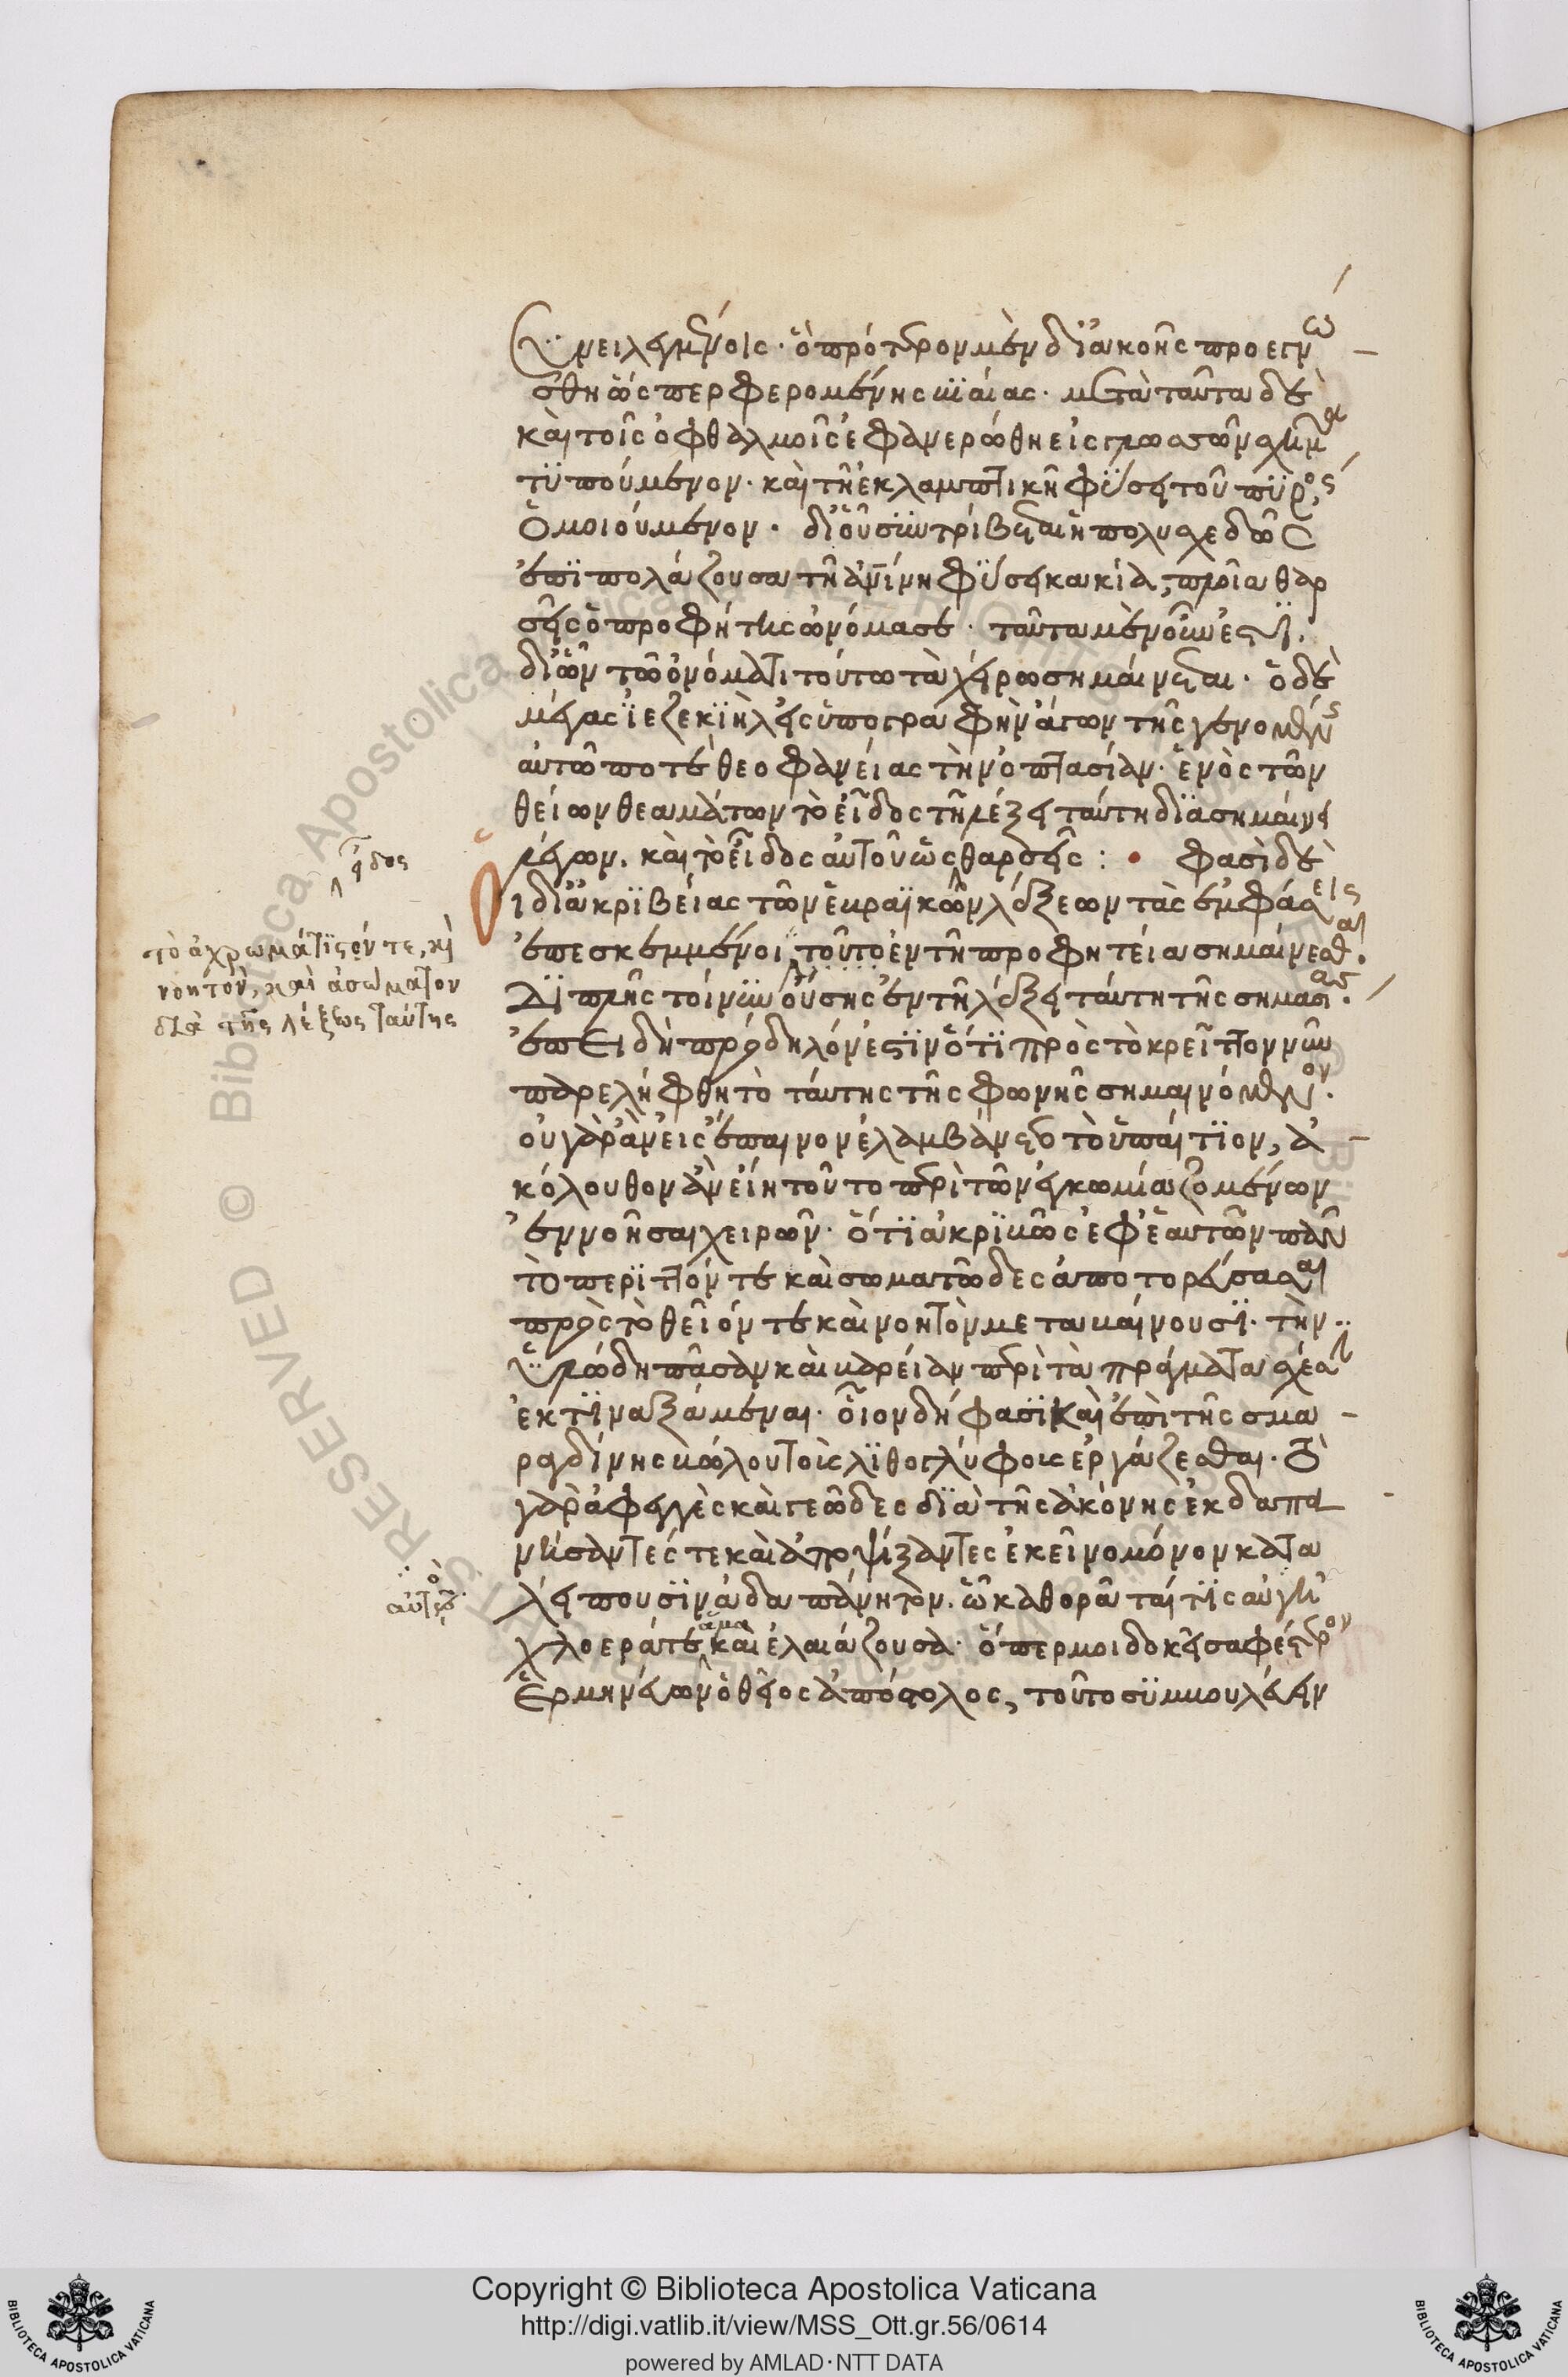 συνειλεγμένοις· ὃ πρότερον μὲν δι' ἀκοῆς προεγνώ
σθη ὥσπερ φερομένης βιαίας· μετὰ ταῦτα δὲ
καὶ τοῖς ὀφθαλμοῖς ἐφανερώθη εἰς γλωσσῶν σχῆμα
τυπούμενον· καὶ τῇ ἐκλαμπτικῇ φύσει τοῦ πυρὸς
ὁμοιούμενον· δι' οὗ συντρίβεται ἡ πολυσχεδῶς
ἐπιπολάζουσα τῇ ἀνθρωπίνῃ φύσει κακία, πλοῖα θαρ
σεῖς ὁ προφήτης ὠνόμασε· ταῦτα μὲν οὖν ἐστὶ,
δι' ὧν τῷ ὀνόματι τούτω τὰ χείρω σημαίνεται· ὁ δὲ
μέγας ἰεζεκιὴλ εἰς ὑπογραφὴν ἄγων τῆς γενομένης
αὐτῷ ποτὲ θεοφανείας τὴν ὀπτασίαν· ἑνὸς τῶν
θείων θεαμάτων τὸ εἶδος τῇ λέξει ταύτη διασημαίνει
λέγων. καὶ τὸ εἶδος αὐτοῦ ὡς θαρσεῖς: • φασὶ δὲ
οἱ δι' ἀκριβείας τῶν ἑβραϊκῶν λέξεων τὰς ἐμφάσεις
ἐπεσκεμμένοι, τοῦτο ἐν τῇ προφητεία σημαίνεσθαι.
Διπλῆς τοίνυν οὔσης ἐν τῇ λέξει ταύτη τῆς σημασίας.
ἐπειδὴ πρόδηλόν ἐστιν ὅτι πρὸς τὸ κρεῖττον νῦν
παρελήφθη τὸ ταύτης τῆς φωνῆς σημαινόμενον.
οὐ γὰρ ἂν εἰς ἔπαινον ἐλαμβάνετο τὸ ὑπαίτιον, ἀ
κόλουθον ἂν εἴη τοῦτο περὶ τῶν ἐγκωμιαζομένων
ἐννοῆσαι χειρῶν· ὅτι ἀκριβῶς ἐφ' ἑαυτῶν πᾶν
τὸ περιττόν τε καὶ σωματῶδες ἀποτορεύσασαι
πρὸς τὸ θεῖόν τε καὶ νοητὸν μεταβαίνουσι· τὴν
ὑλώδη πᾶσαν καὶ βαρεῖαν περὶ τὰ πράγματα σχέσιν
ἐκτιναξάμεναι· οἷον δή φασι καὶ ἐπὶ τῆς σμα
ραγδίνης βώλου τοὶς λιθογλύφοις ἐργάζεσθαι· τὸ
γὰρ ἀφεγγὲς καὶ γεῶδες διὰ τῆς ἀκόνης ἐκδαπα
νήσαντές τε καὶ ἀποψίξαντες ἐκεῖνο μόνον κατα
λείπουσιν ἀδαπάνητον. ᾧ καθορᾶται τις αὐγὴ
χλοερά τε ἅμα καὶ ἐλαιάζουσα· ὅπερ μοι δοκεῖ σαφέστερον
ἑρμηνεύων ὁ θεῖος ἀπόστολος, τοῦτο συμβουλεύειν
εἶδος
τὸ ἀχρωμάτιστόν τε, καὶ
νοητὸν, καὶ ἀσώματον
διὰ τῆς λέξεως ταύτης
Copyright © Biblioteca Apostolica Vaticana
http://digi.vatlib.it/view/MSS_Ott.gr.56/0614
powered by AMLAD·NTT DATA
BIBLIOTECA APOSTOLICA VATICANA
BIBLIOTECA APOSTOLICA VATICANA